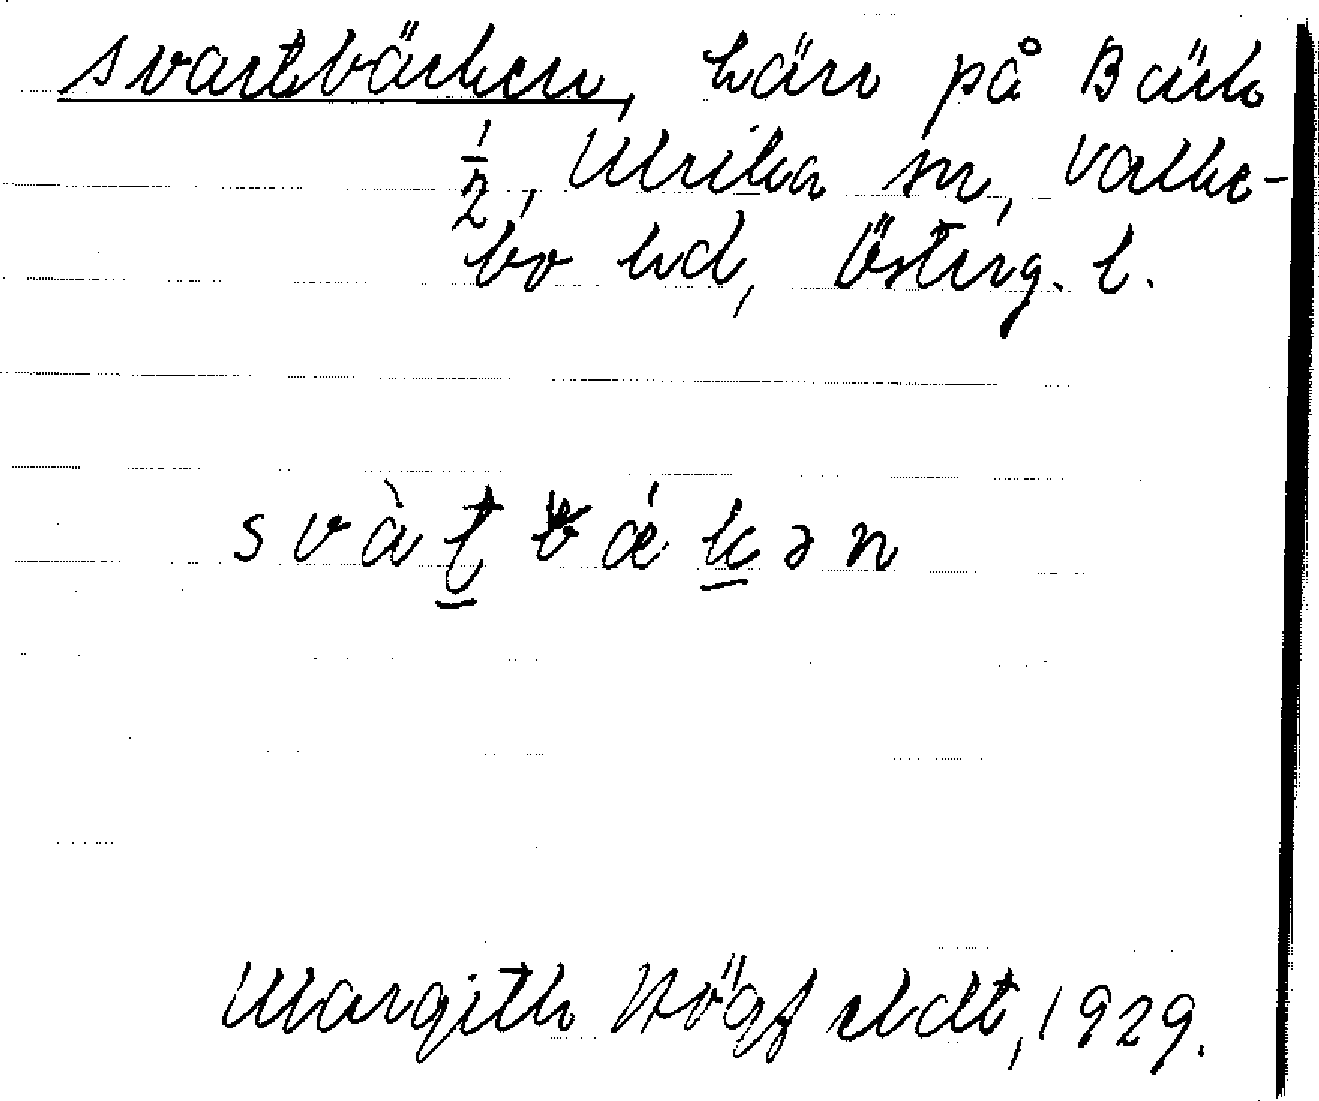 svartbäcken, kärr på Bäck
1/2, Ulrika sn, Valke-
bo hd, Österg. l.
svàt̲bǽk̲ən
Margith Högfeldt, 1929.